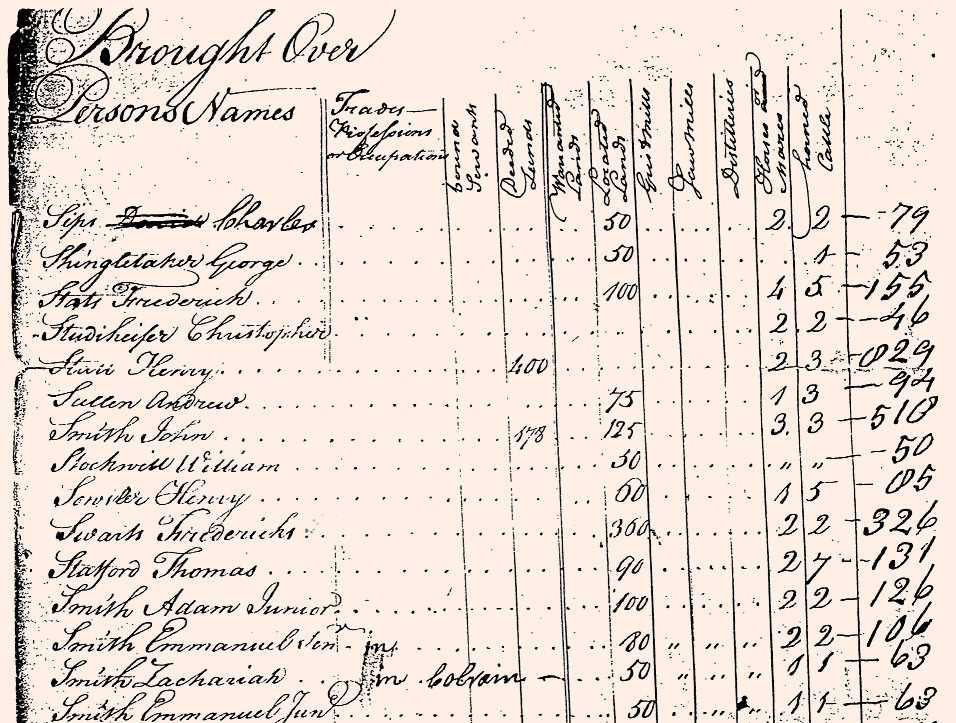 Brought Over
Persons Names Trades Professions or Occupations bound Servants Deeded Lands Warranted Lands Located Lands Grist Mills Saw Mills Distilleries Horses and Mares horned Cattle
Sips Charles 50 2 2 — 79
Shingletaker George 50 1 — 53
Stats Friederich 100 4 5 — 155
Studiheiser Christopher 2 2 — 46
Starr Henry 400 2 3 — 829
Sullen Andrew 75 1 3 — 94
Smith John 178 125 3 3 — 518
Stockwill William 50 " " — 50
Sowiler Henry 60 1 5 — 85
Swarts Friederichs 300 2 2 — 326
Statford Thomas 90 2 7 — 131
Smith Adam Junior 100 2 2 — 126
Smith Emmanuel Senr in 80 " " 2 2 — 106
Smith Zachariah in Colrain — 50 " " " 1 1 — 63
Smith Emmanuel Junr 50 1 1 — 63